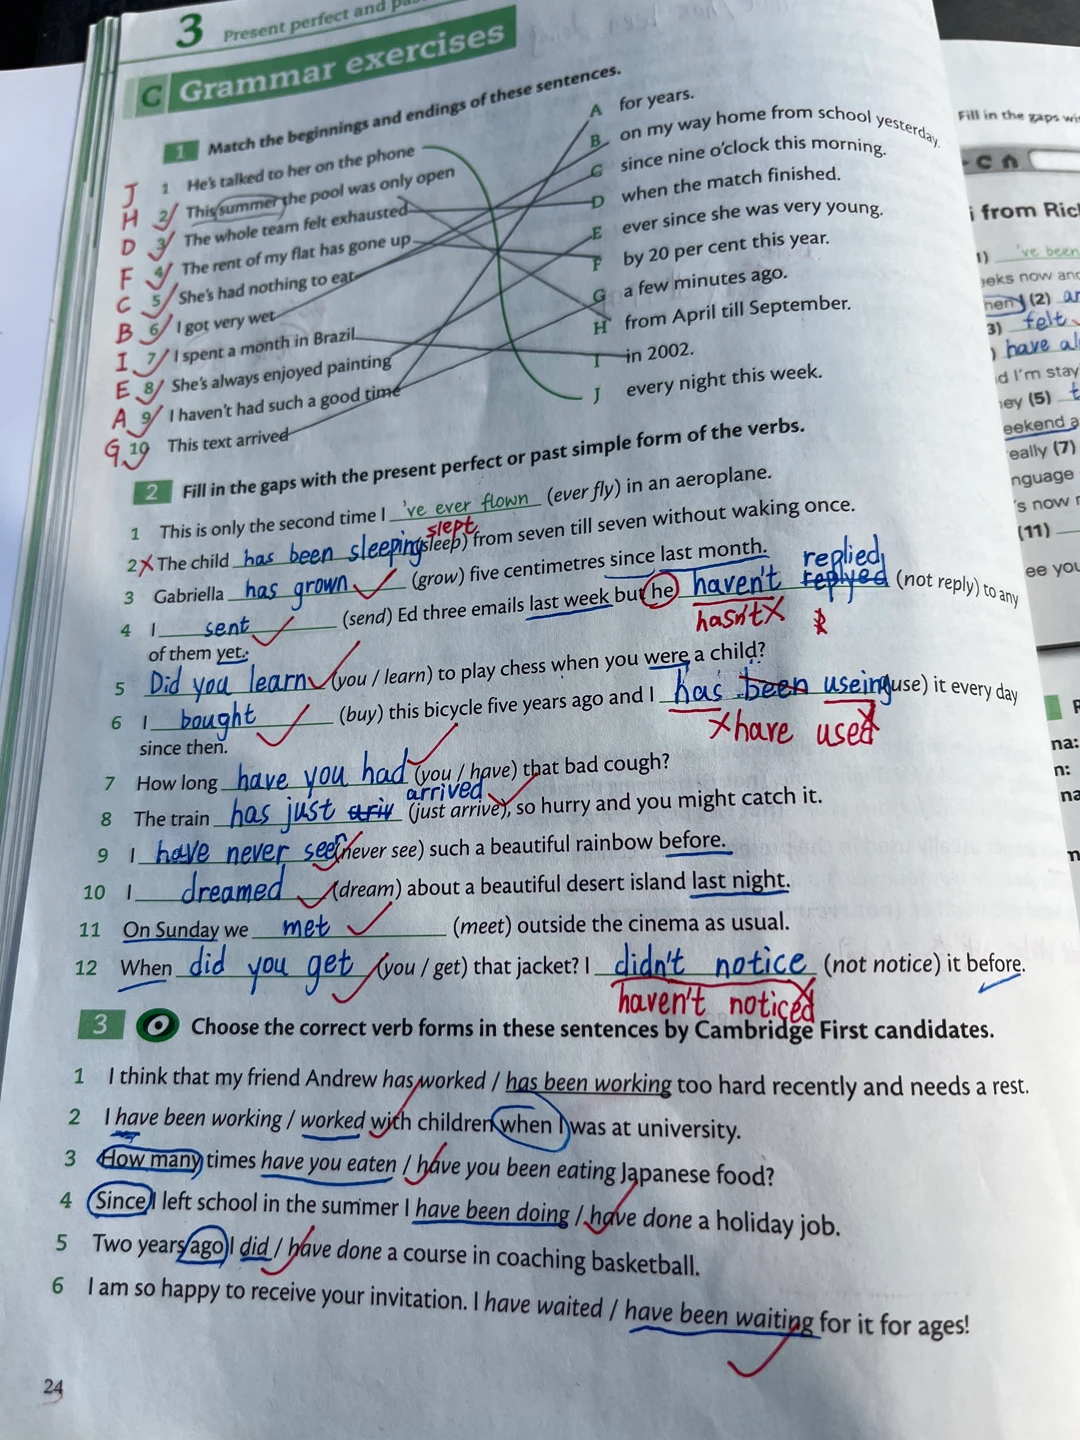 3 Present perfect and
C Grammar exercises
1 Match the beginnings and endings of these sentences.
J 1 He's talked to her on the phone
H 2 This summer the pool was only open
D 3 The whole team felt exhausted
F 4 The rent of my flat has gone up
C 5 She's had nothing to eat
B 6 I got very wet
I 7 I spent a month in Brazil
E 8 She's always enjoyed painting
A 9 I haven't had such a good time
G 10 This text arrived
A for years.
B on my way home from school yesterday.
C since nine o'clock this morning.
D when the match finished.
E ever since she was very young.
F by 20 per cent this year.
G a few minutes ago.
H from April till September.
I in 2002.
J every night this week.
2 Fill in the gaps with the present perfect or past simple form of the verbs.
1 This is only the second time I 've ever flown (ever fly) in an aeroplane.
slept
2 The child has been sleeping (sleep) from seven till seven without waking once.
3 Gabriella has grown (grow) five centimetres since last month.
replied
4 I sent (send) Ed three emails last week but he haven't replyed (not reply) to any
hasn't
of them yet.
5 Did you learn (you / learn) to play chess when you were a child?
6 I bought (buy) this bicycle five years ago and I has been useing (use) it every day
have used
since then.
7 How long have you had (you / have) that bad cough?
arrived
8 The train has just arriv (just arrive), so hurry and you might catch it.
9 I have never seen (never see) such a beautiful rainbow before.
10 I dreamed (dream) about a beautiful desert island last night.
11 On Sunday we met (meet) outside the cinema as usual.
12 When did you get (you / get) that jacket? I didn't notice (not notice) it before.
haven't noticed
3 Choose the correct verb forms in these sentences by Cambridge First candidates.
1 I think that my friend Andrew has worked / has been working too hard recently and needs a rest.
2 I have been working / worked with children when I was at university.
3 How many times have you eaten / have you been eating Japanese food?
4 Since I left school in the summer I have been doing / have done a holiday job.
5 Two years ago I did / have done a course in coaching basketball.
6 I am so happy to receive your invitation. I have waited / have been waiting for it for ages!
24
Fill in the gaps
C
from
've been
eeks now and
(2)
3) felt
have al
d I'm stay
ey (5)
eekend a
eally (7)
nguage
's now
(11)
ee you
na:
n:
na